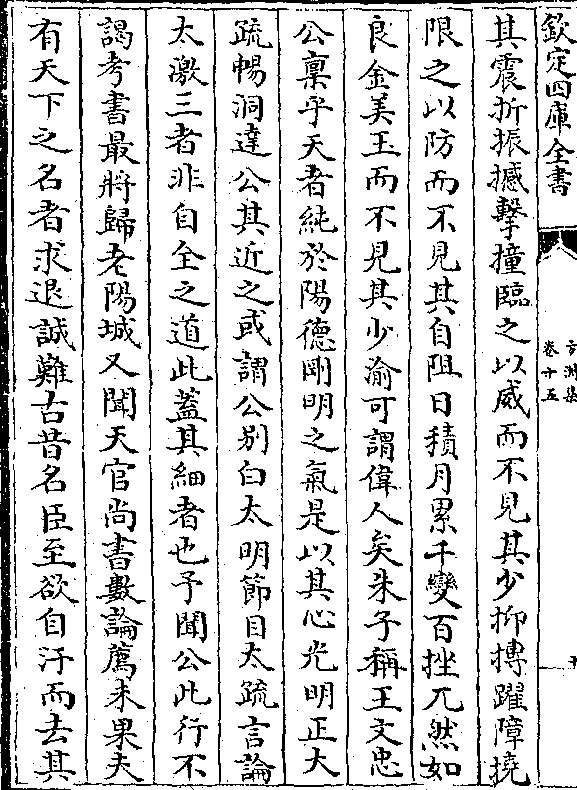 欽定四庫全書
方洲集
卷十五
其震折振撼擊撞臨之以威而不見其少抑摶躍障撓
限之以防而不見其自阻日積月累千變百挫兀然如
良金美玉而不見其少渝可謂偉人矣朱子稱王文忠
公稟乎天者純於陽德剛明之氣是以其心光明正大
疏暢洞達公其近之或謂公别白太明節目太疏言論
太激三者非自全之道此蓋其細者也予聞公此行不
謁考書最將歸老陽城又聞天官尚書數論薦未果夫
有天下之名者求退誠難古昔名臣至欲自汙而去其